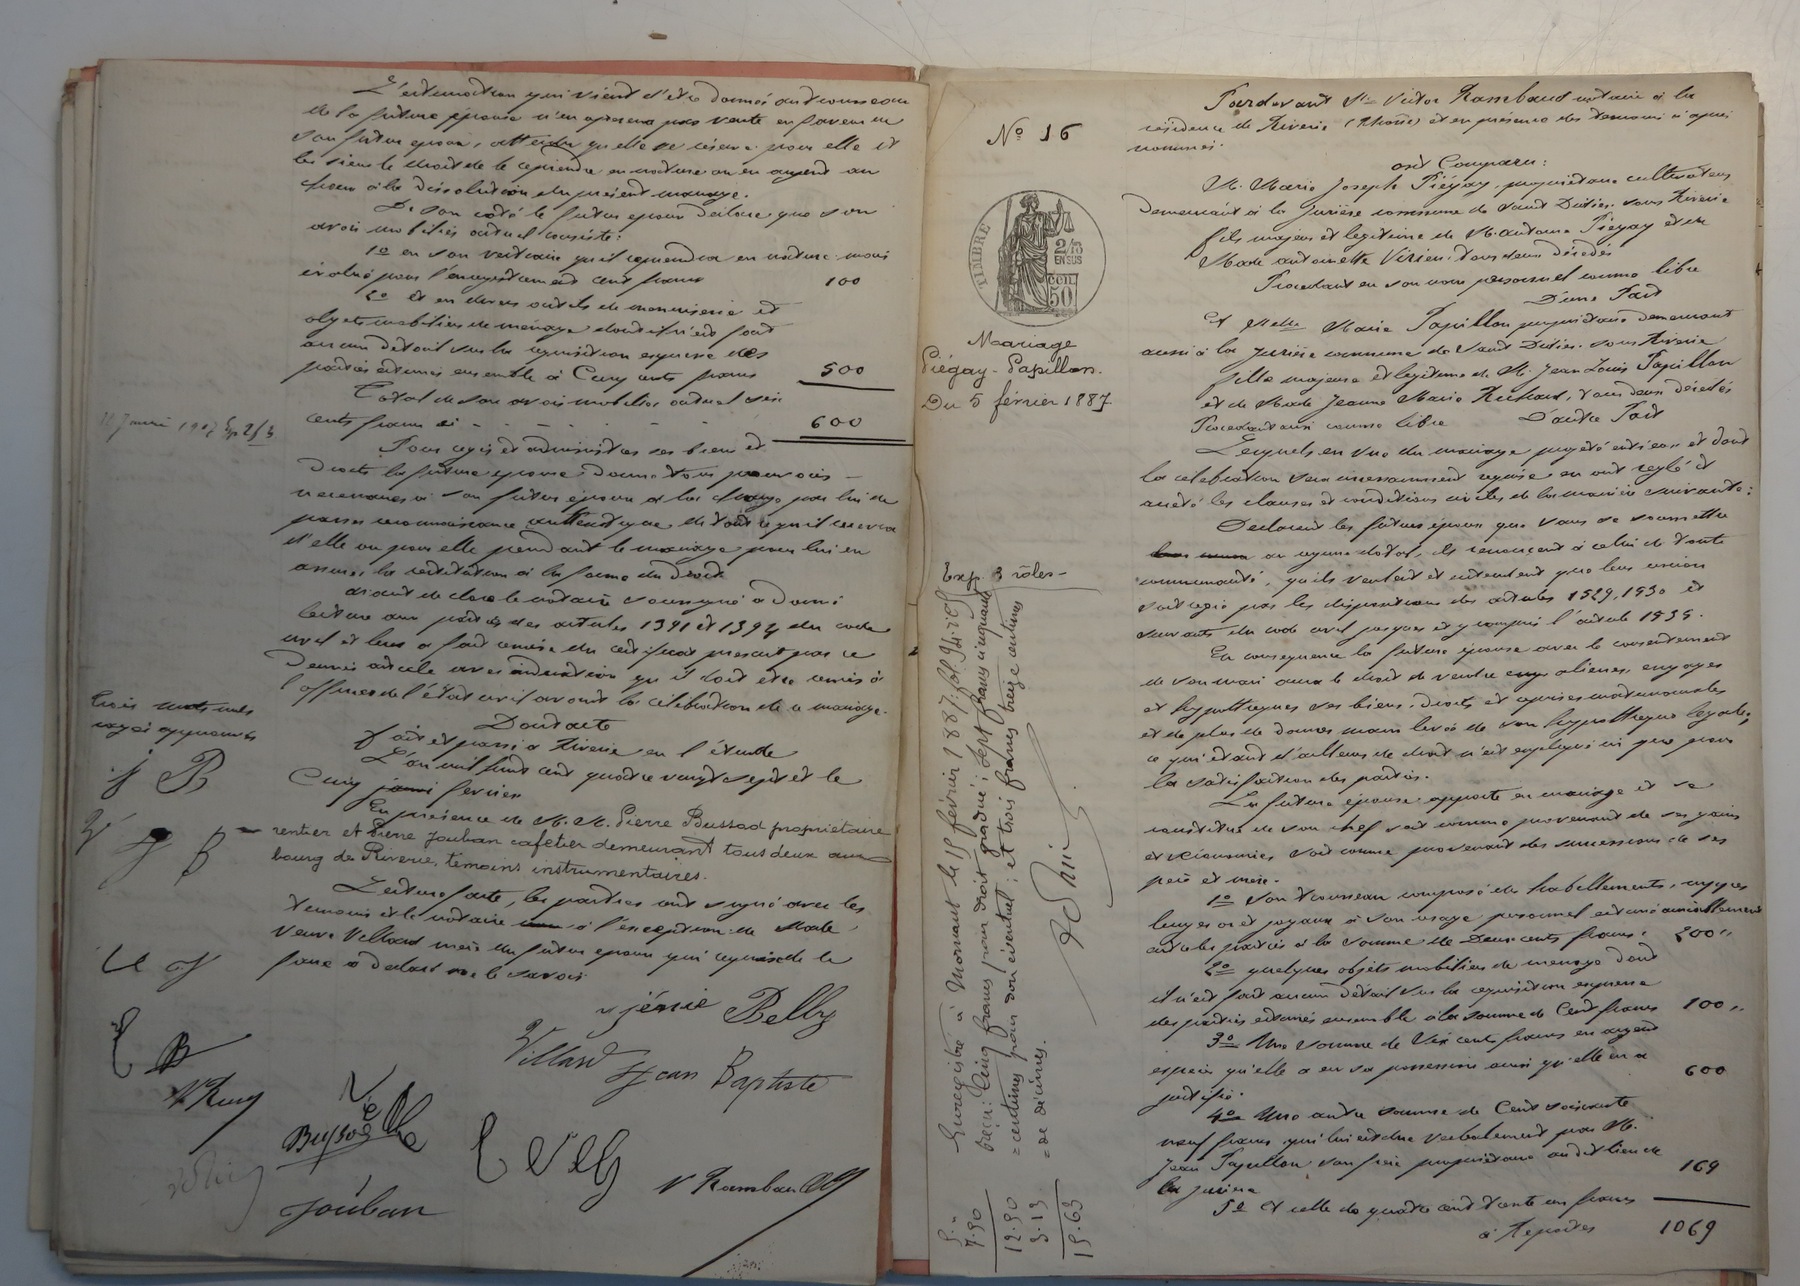 L'estimation qui vient d'être donnée au trousseau
de la future épouse n'en opérera pas vente en faveur de
son futur époux, attendu qu'elle se réserve pour elle et
les siens le droit de le reprendre en nature ou en argent au
choix à la dissolution du présent mariage.
De son côté le futur époux déclare que son
avoir mobilier actuel consiste:
1º en son vestiaire qu'il reprendra en nature mais
évalué pour l'enregistrement cent francs 100
2º et en divers outils de menuiserie et
objets mobiliers de ménage dont il n'est fait
aucun détail sur la réquisition expresse des
parties estimés ensemble à Cinq cents francs 500
Total de son avoir mobilier actuel six
cents francs ci - - - - - 600
Pour régir et administrer ses biens et
droits la future épouse donne tous pouvoirs
nécessaires à son futur époux à la charge par lui de
passer reconnaissance authentique de tout ce qu'il recevra
d'elle ou pour elle pendant le mariage pour lui en
assurer la restitution à la forme du droit
Avant de clore le notaire soussigné a donné
lecture aux parties des articles 1391 et 1394 du code
civil et leur a fait remise du certificat prescrit par ce
dernier article avec indication qu'il doit être remis à
l'officier de l'état civil avant la célébration de ce mariage.
Dont acte
fait et passé à Riverie en l'étude
L'an mil huit cent quatre vingt sept et le
Cinq janvi février
En présence de M. M. Pierre Bussod propriétaire
rentier et Pierre Jouban cafetier demeurant tous deux au
bourg de Riverie, témoins instrumentaires.
Lecture faite, les parties ont signé avec les
témoins et le notaire à l'exception de Made
veuve Villard mère du futur époux qui requise de le
faire a déclaré ne le savoir
trois mots nuls
rayés approuvés
j B
Villard Jean Baptiste
Jouban
V Rambaud
Nº 16
TIMBRE
2/10
EN SUS
50
Mariage
Piégay-Papillon.
Du 5 février 1887.
Exp. 3 rôles-
Enregistré à Mornant le 15 février 1887, fol.
Reçu: Cinq francs pour droit gradué; sept francs cinquante
=centimes pour don éventuel; et trois francs treize centimes
=de décimes.
5. "
7.50
12.50
3.13
15.63
Pardevant Me Victor Rambaud notaire à la
résidence de Riverie (Rhône) et en présence des témoins ci après
nommés.
ont Comparu:
M. Marie Joseph Piégay, propriétaire cultivateur
demeurant à la Jurière commune de Saint Didier-sous Riverie
fils majeur et légitime de M. Antoine Piégay et de
Made Antoinette tous deux décédés
Procédant en son nom personnel comme libre
D'une Part
Et Melle Marie Papillon propriétaire demeurant
aussi à la Jurière commune de Saint Didier-sous Riverie
fille majeure et légitime de M. Jean Louis Papillon
et de Made Jeanne Marie Richard, tous deux décédés
Procédant aussi comme libre D'autre Part
Lesquels en vue du mariage projeté entre eux et dont
la célébration sera incessamment requise en ont réglé et
arrêté les clauses et conditions civiles de la manière suivante:
Déclarent les futurs époux que sans se soumettre
au régime dotal, ils renoncent à celui de toute
communauté, qu'ils veulent et entendent que leur union
soit régie par les dispositions des articles 1529, 1530 et
suivants du code civil jusques et y compris l'article 1535.
En conséquence la future épouse avec le consentement
de son mari aura le droit de vendre aliéner, engager
et hypothéquer ses biens, droits et reprises matrimoniales
et de plus de donner main levée de son hypothèque légale,
ce qui étant d'ailleurs de droit n'est expliqué ici que pour
la satisfaction des parties.
La future épouse apporte en mariage et se
constitue de son chef soit comme provenant de ses gains
et économies soit comme provenant des successions de ses
père et mère.
1º Son trousseau composé de habillements, nippes
linges or et joyaux à son usage personnel estimé amiablement
entre les parties à la somme de Deux cents francs. 200"
2º quelques objets mobiliers de ménage dont
il n'est fait aucun détail sur la réquisition expresse
des parties estimés ensemble à la somme de Cent francs 100"
3º Une somme de Six cents francs en argent
espèces qu'elle a en sa possession ainsi qu'elle en a
justifié. 600
4º Une autre somme de Cent soixante
neuf francs qui lui est due verbalement par M.
Jean Papillon son frère propriétaire au dit lieu de
la Jurière 169
5º Et celle de quatre cent trente un francs
à Reporter 1069